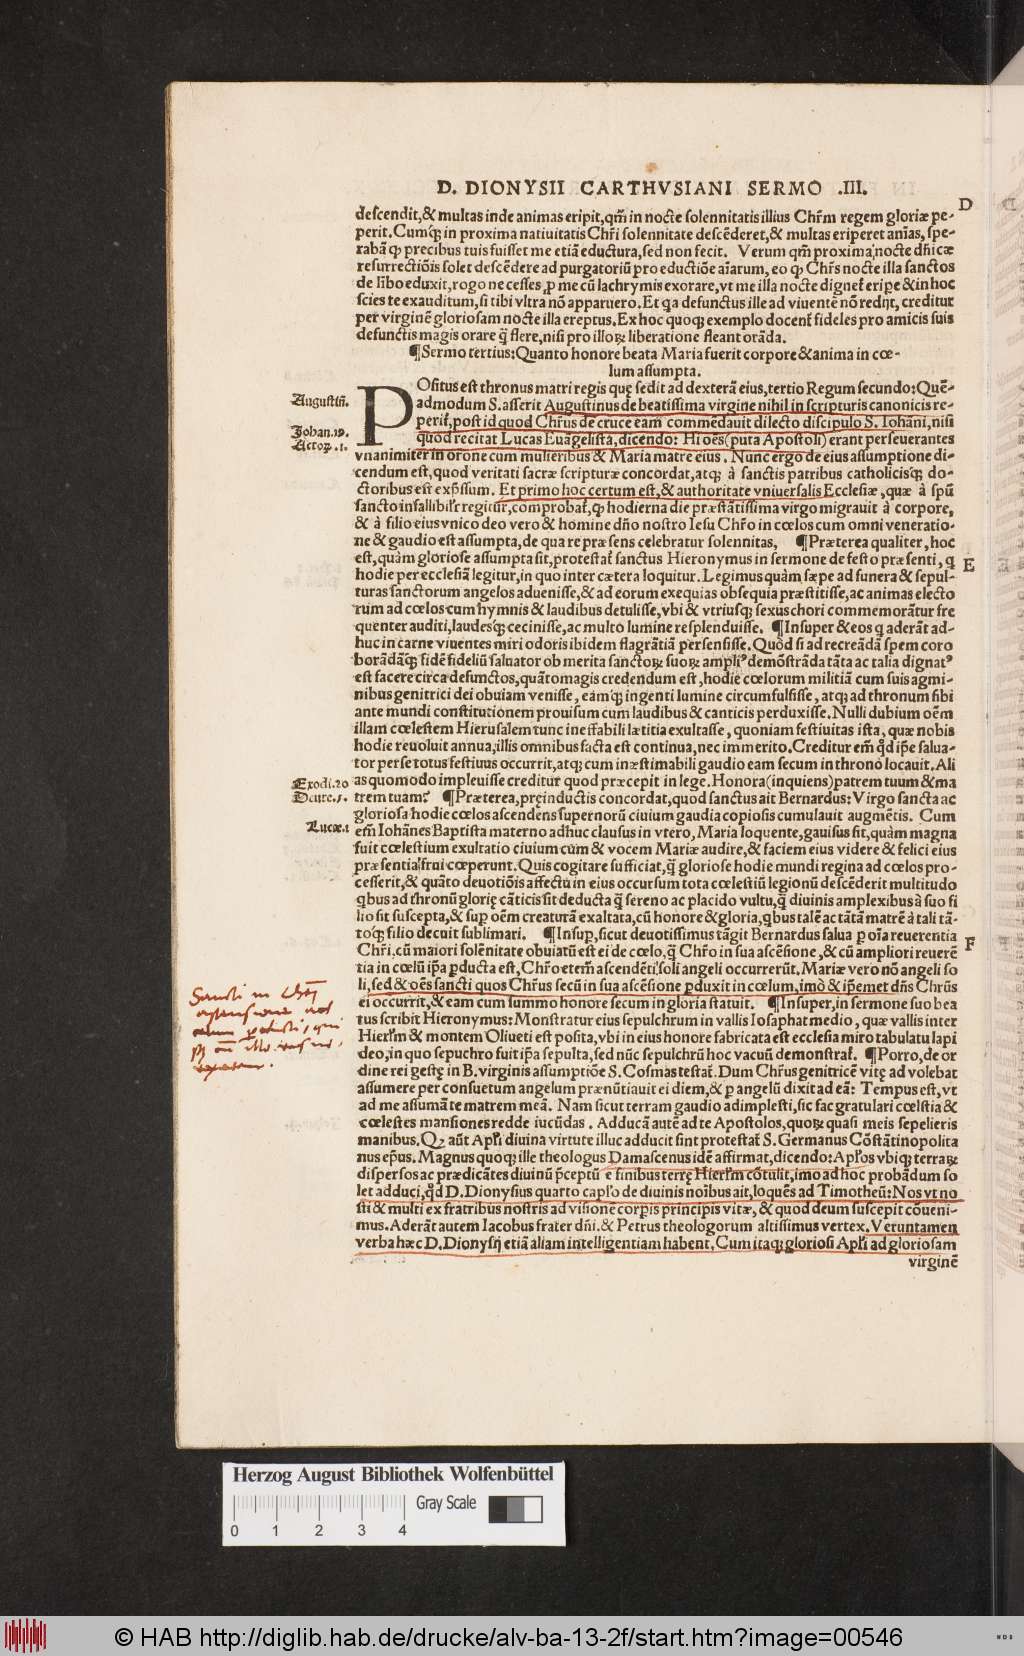 D. DIONYSII CARTHVSIANI SERMO .III.
D
descendit,& multas inde animas eripit,qm̃ in nocte solennitatis illius Chr̃m regem gloriæ pe-
perit. Cumq̃ in proxima natiuitatis Chr̃i solennitate descēderet,& multas eriperet aīas, spe-
rabā ꝙ precibus tuis fuisset me etiā eductura,sed non fecit. Verum qm̃ proxima nocte dñicæ
resurrectiōis solet descēdere ad purgatoriū pro eductiōe aīarum, eo ꝙ Chr̃s nocte illa sanctos
de lībo eduxit,rogo ne cesses, ꝑ me cū lachrymis exorare, vt me illa nocte dignet̃ eripe & in hoc
scies te exauditum,si tibi vltra nō apparuero. Et qa defunctus ille ad viuentē nō redijt, creditur
per virginē gloriosam nocte illa ereptus. Ex hoc quoq; exemplo docent̃ fideles pro amicis suis
defunctis magis orare q̃ flere,nisi pro illoꝝ liberatione fleant orāda.
¶Sermo tertius: Quanto honore beata Maria fuerit corpore & anima in cœ-
lum assumpta.
POsitus est thronus matri regis quę sedit ad dexterā eius,tertio Regum secundo: Quē-
Augustiñ.
admodum S. asserit Augustinus de beatissima virgine nihil in scripturis canonicis re-
perit̃,post id quod Chr̃us de cruce eam commēdauit dilecto discipulo S. Iohāni,nisi
Johan.19.
quod recitat Lucas Euāgelista, dicendo: Hi oēs (puta Apostoli) erant perseuerantes
Actoꝝ .1.
vnanimiter in orōne cum mulieribus & Maria matre eius. Nunc ergo de eius assumptione di-
cendum est,quod veritati sacræ scripturæ concordat,atq; à sanctis patribus catholicisq; do-
ctoribus est exp̃ssum. Et primo hoc certum est,& authoritate vniuersalis Ecclesiæ, quæ à spū
sancto infallibilr̃ regitur,comprobat̃,ꝙ hodierna die præstātissima virgo migrauit à corpore,
& à filio eius vnico deo vero & homine dño nostro Iesu Chr̃o in cœlos cum omni veneratio-
ne & gaudio est assumpta, de qua re præsens celebratur solennitas, ¶Præterea qualiter, hoc
est, quàm gloriose assumpta sit,protestat̃ sanctus Hieronymus in sermone de festo præsenti, q
E
hodie per ecclesiā legitur,in quo inter cætera loquitur. Legimus quàm sæpe ad funera & sepul-
turas sanctorum angelos aduenisse,& ad eorum exequias obsequia præstitisse,ac animas electo
rum ad cœlos cum hymnis & laudibus detulisse,vbi & vtriusq; sexus chori commemorātur fre
quenter auditi,laudesq; cecinisse,ac multo lumine resplenduisse. ¶Insuper & eos q aderāt ad-
huc in carne viuentes miri odoris ibidem flagrātiā persensisse. Quòd si ad recreādā spem coro
borādāq; fidē fideliū saluator ob merita sanctoꝝ suoꝝ ampliꝰ demōstrāda tāta ac talia dignatꝰ
est facere circa defunctos,quātomagis credendum est, hodie cœlorum militiā cum suis agmi-
nibus genitrici dei obuiam venisse, eamq; ingenti lumine circumfulsisse, atq; ad thronum sibi
ante mundi constitutionem prouisum cum laudibus & canticis perduxisse. Nulli dubium oēm
illam cœlestem Hierusalem tunc ineffabili lætitia exultasse, quoniam festiuitas ista, quæ nobis
hodie reuoluit annua,illis omnibus facta est continua,nec immerito. Creditur em̃ qd̃ ip̃e salua-
tor per se totus festiuus occurrit,atq; cum inæstimabili gaudio eam secum in throno locauit. Ali
Exodi.20
as quomodo impleuisse creditur quod præcepit in lege. Honora (inquiens) patrem tuum & ma
Deute.5.
trem tuam? ¶Præterea,pręinductis concordat,quod sanctus ait Bernardus: Virgo sancta ac
gloriosa hodie cœlos ascendens supernorū ciuium gaudia copiosis cumulauit augmētis. Cum
Lucæ.1
em̃ Iohānes Baptista materno adhuc clausus in vtero, Maria loquente, gauisus sit,quàm magna
fuit cœlestium exultatio ciuium cùm & vocem Mariæ audire,& faciem eius videre & felici eius
præsentia frui cœperunt. Quis cogitare sufficiat,q̃ gloriose hodie mundi regina ad cœlos pro-
cesserit,& quāto deuotiōis affectu in eius occursum tota cœlestiū legionū descēderit multitudo
qbus ad thronū glorię cāticis sit deducta q̃ sereno ac placido vultu,q̃ diuinis amplexibus à suo fi
lio sit suscepta,& sup oēm creaturā exaltata,cū honore & gloria,qbus talē ac tātā matrē à tali tā-
toq; filio decuit sublimari. ¶Insup, sicut deuotissimus tāgit Bernardus salua ꝑ oīa reuerentia
F
Chr̃i,cū maiori solēnitate obuiatū est ei de cœlo,q̃ Chr̃o in sua ascēsione, & cū ampliori reuerē
tia in cœlū ip̃a ꝑducta est, Chr̃o etem̃ ascendēti soli angeli occurrerūt, Mariæ vero nō angeli so
li,sed & oēs sancti quos Chr̃us secū in sua ascēsione ꝑduxit in cœlum,imò & ip̃emet dñs Chr̃us
ei occurrit,& eam cum summo honore secum in gloria statuit. ¶Insuper,in sermone suo bea
tus scribit Hieronymus: Monstratur eius sepulchrum in vallis Iosaphat medio, quæ vallis inter
Hier̃lm & montem Oliueti est posita,vbi in eius honore fabricata est ecclesia miro tabulatu lapi
deo,in quo sepuchro fuit ip̃a sepulta, sed nūc sepulchrū hoc vacuū demonstrat̃. ¶Porro, de or
dine rei gestę in B. virginis assumptiōe S. Cosmas testat̃. Dum Chr̃us genitricē vitę ad volebat
assumere per consuetum angelum prænūtiauit ei diem,& ꝑ angelū dixit ad eā: Tempus est, vt
ad me assumā te matrem meā. Nam sicut terram gaudio adimplesti,sic fac gratulari cœlstia &
cœlestes mansiones redde iucūdas. Adducā autē ad te Apostolos,quoꝝ quasi meis sepelieris
manibus. Qꝫ aūt Apl̃i diuina virtute illuc adducit̃ sint protestat̃ S. Germanus Cōstātinopolita
nus ep̃us. Magnus quoq; ille theologus Damascenus idē affirmat, dicendo: Apl̃os vbiq; terraꝝ
dispersos ac prædicātes diuinū p̃ceptū e finibus terrę Hier̃lm cōtulit,imo ad hoc probādum so
let adduci,qd̃ D. Dionysius quarto capl̃o de diuinis noībus ait,loquēs ad Timotheū: Nos vt no
sti & multi ex fratribus nostris ad visionē corpis principis vitæ, & quod deum suscepit cōueni-
mus. Aderāt autem Iacobus frater dñi. & Petrus theologorum altissimus vertex. Veruntamen
verba hæc D. Dionysij etiā aliam intelligentiam habent. Cum itaq; gloriosi Apl̃i ad gloriosam
virginē
Herzog August Bibliothek Wolfenbüttel
Gray Scale
0 1 2 3 4
© HAB http://diglib.hab.de/drucke/alv-ba-13-2f/start.htm?image=00546